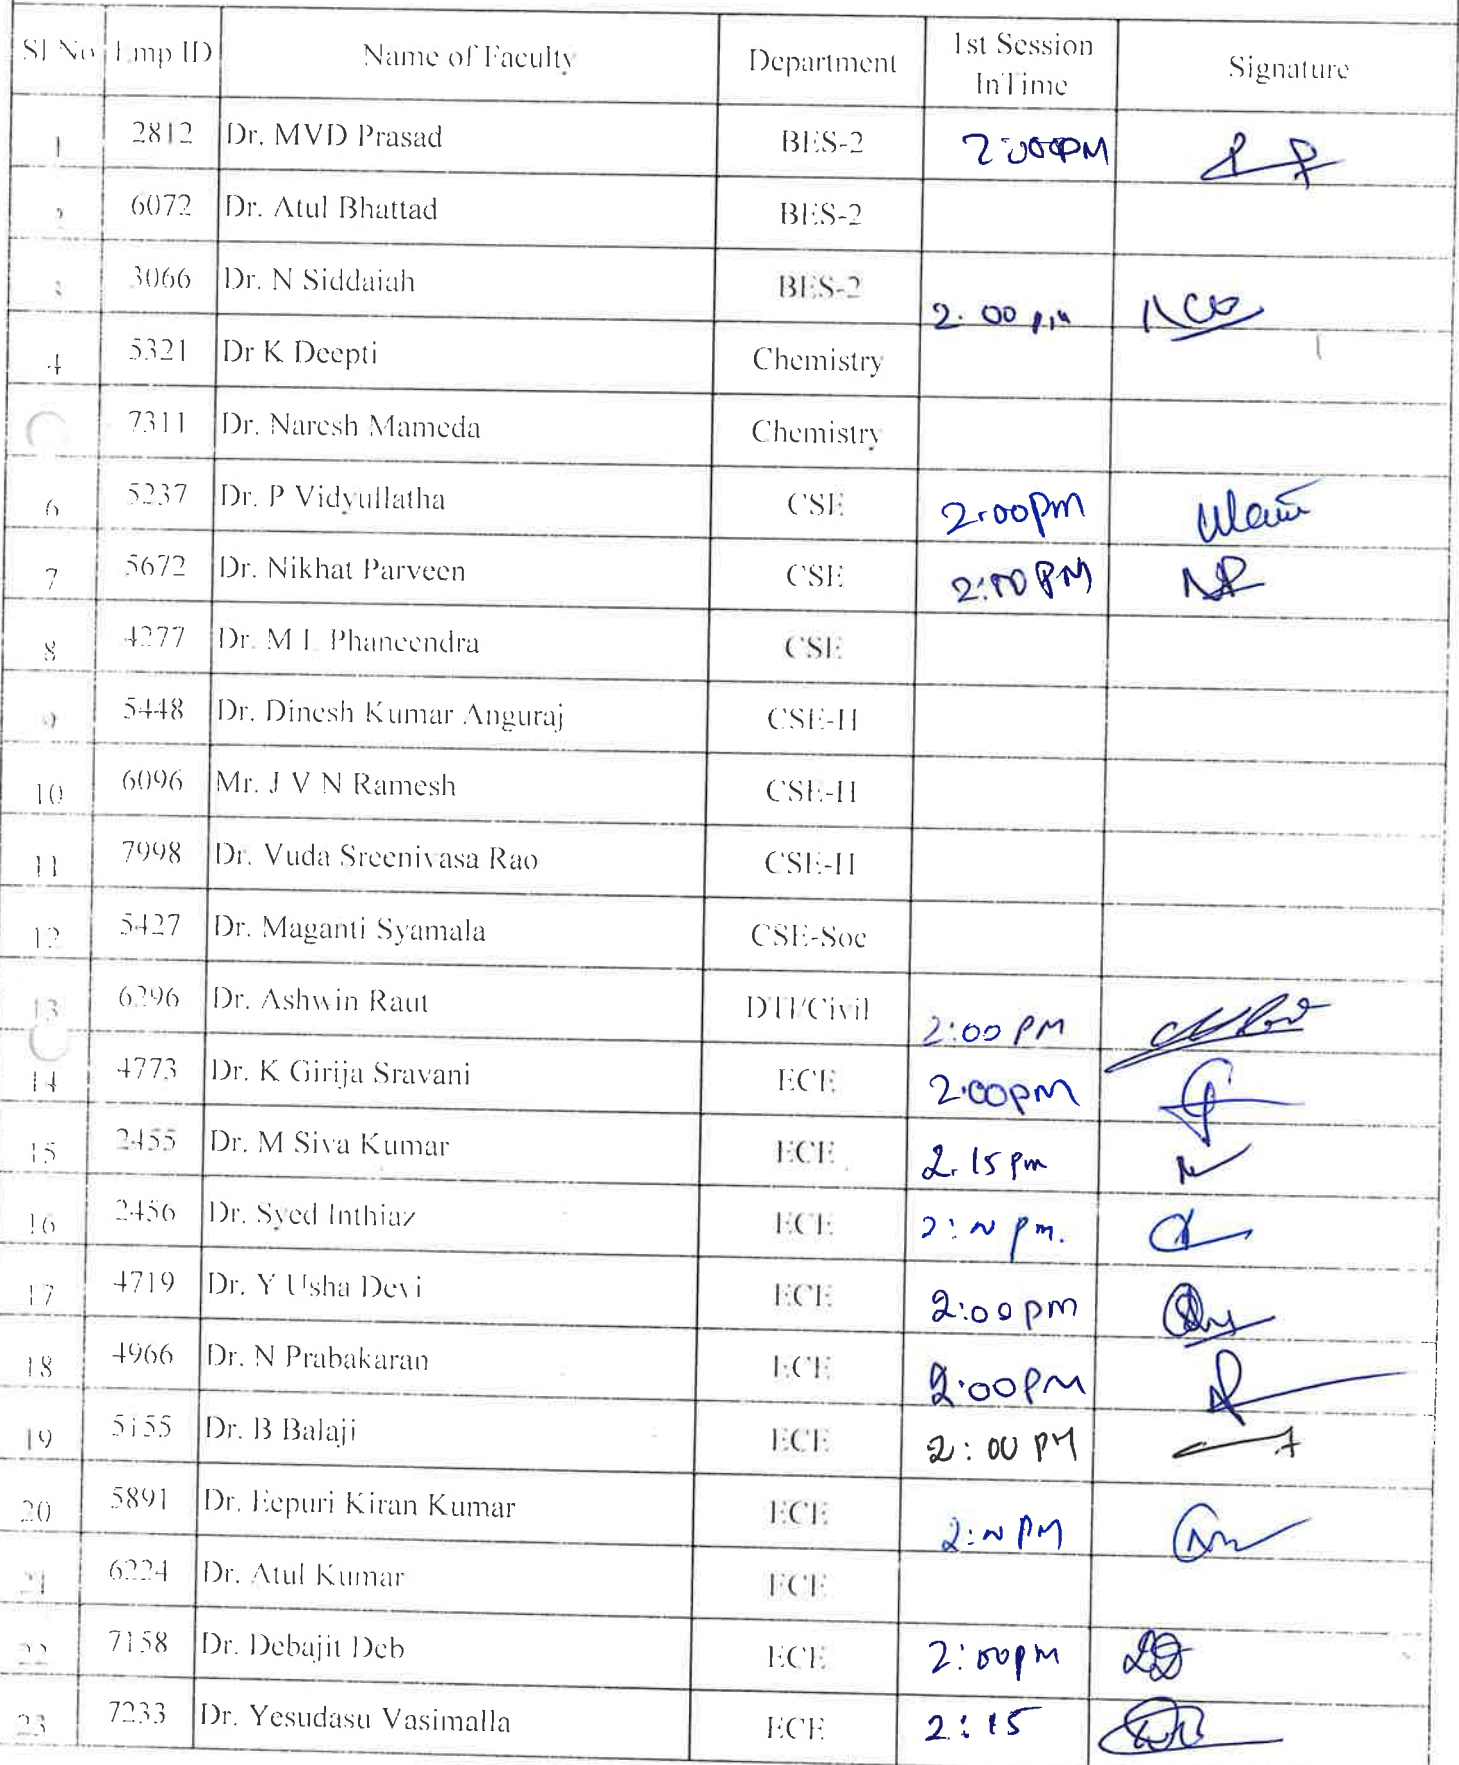 Sl No Emp ID Name of Faculty Department 1st Session InTime Signature
1 2812 Dr. MVD Prasad BES-2 2:00PM
2 6072 Dr. Atul Bhattad BES-2
3 3066 Dr. N Siddaiah BES-2 2.00 pm
4 5321 Dr K Deepti Chemistry
7311 Dr. Naresh Mameda Chemistry
6 5237 Dr. P Vidyullatha CSE 2.00pm
7 5672 Dr. Nikhat Parveen CSE 2:00 PM
8 4277 Dr. M L Phaneendra CSE
9 5448 Dr. Dinesh Kumar Anguraj CSE-H
10 6096 Mr. J V N Ramesh CSE-H
11 7998 Dr. Vuda Sreenivasa Rao CSE-H
12 5427 Dr. Maganti Syamala CSE-Soc
13 6296 Dr. Ashwin Raut DTI/Civil 2:00 PM
14 4773 Dr. K Girija Sravani ECE 2.00pm
15 2455 Dr. M Siva Kumar ECE 2.15 pm
16 2456 Dr. Syed Inthiaz ECE
17 4719 Dr. Y Usha Devi ECE 2:00 pm
18 4966 Dr. N Prabakaran ECE 2.00PM
19 5155 Dr. B Balaji ECE 2:00 PM
20 5891 Dr. Eepuri Kiran Kumar ECE
21 6224 Dr. Atul Kumar ECE
22 7158 Dr. Debajit Deb ECE 2:00pm
23 7233 Dr. Yesudasu Vasimalla ECE 2:15